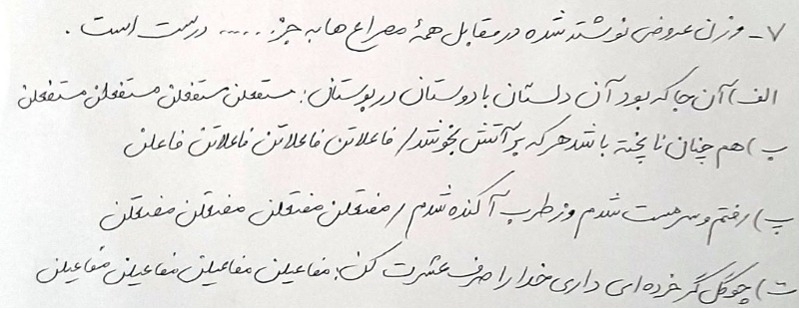 ۷- وزن عروضی نوشته شده در مقابل همهٔ مصراع ها به جز ..... درست است.
الف) آن جا که بود آن دلستان با دوستان در بوستان: مستفعلن مستفعلن مستفعلن مستفعلن
ب) هم چنان ناپخته باشد هر که بر آتش نجوشد / فاعلاتن فاعلاتن فاعلاتن فاعلن
پ) رفتم و سرمست شدم وز طرب آکنده شدم / مفتعلن مفتعلن مفتعلن مفتعلن
ت) چو گل گر خرده ای داری خدا را صرف عشرت کن: مفاعیلن مفاعیلن مفاعیلن مفاعیلن